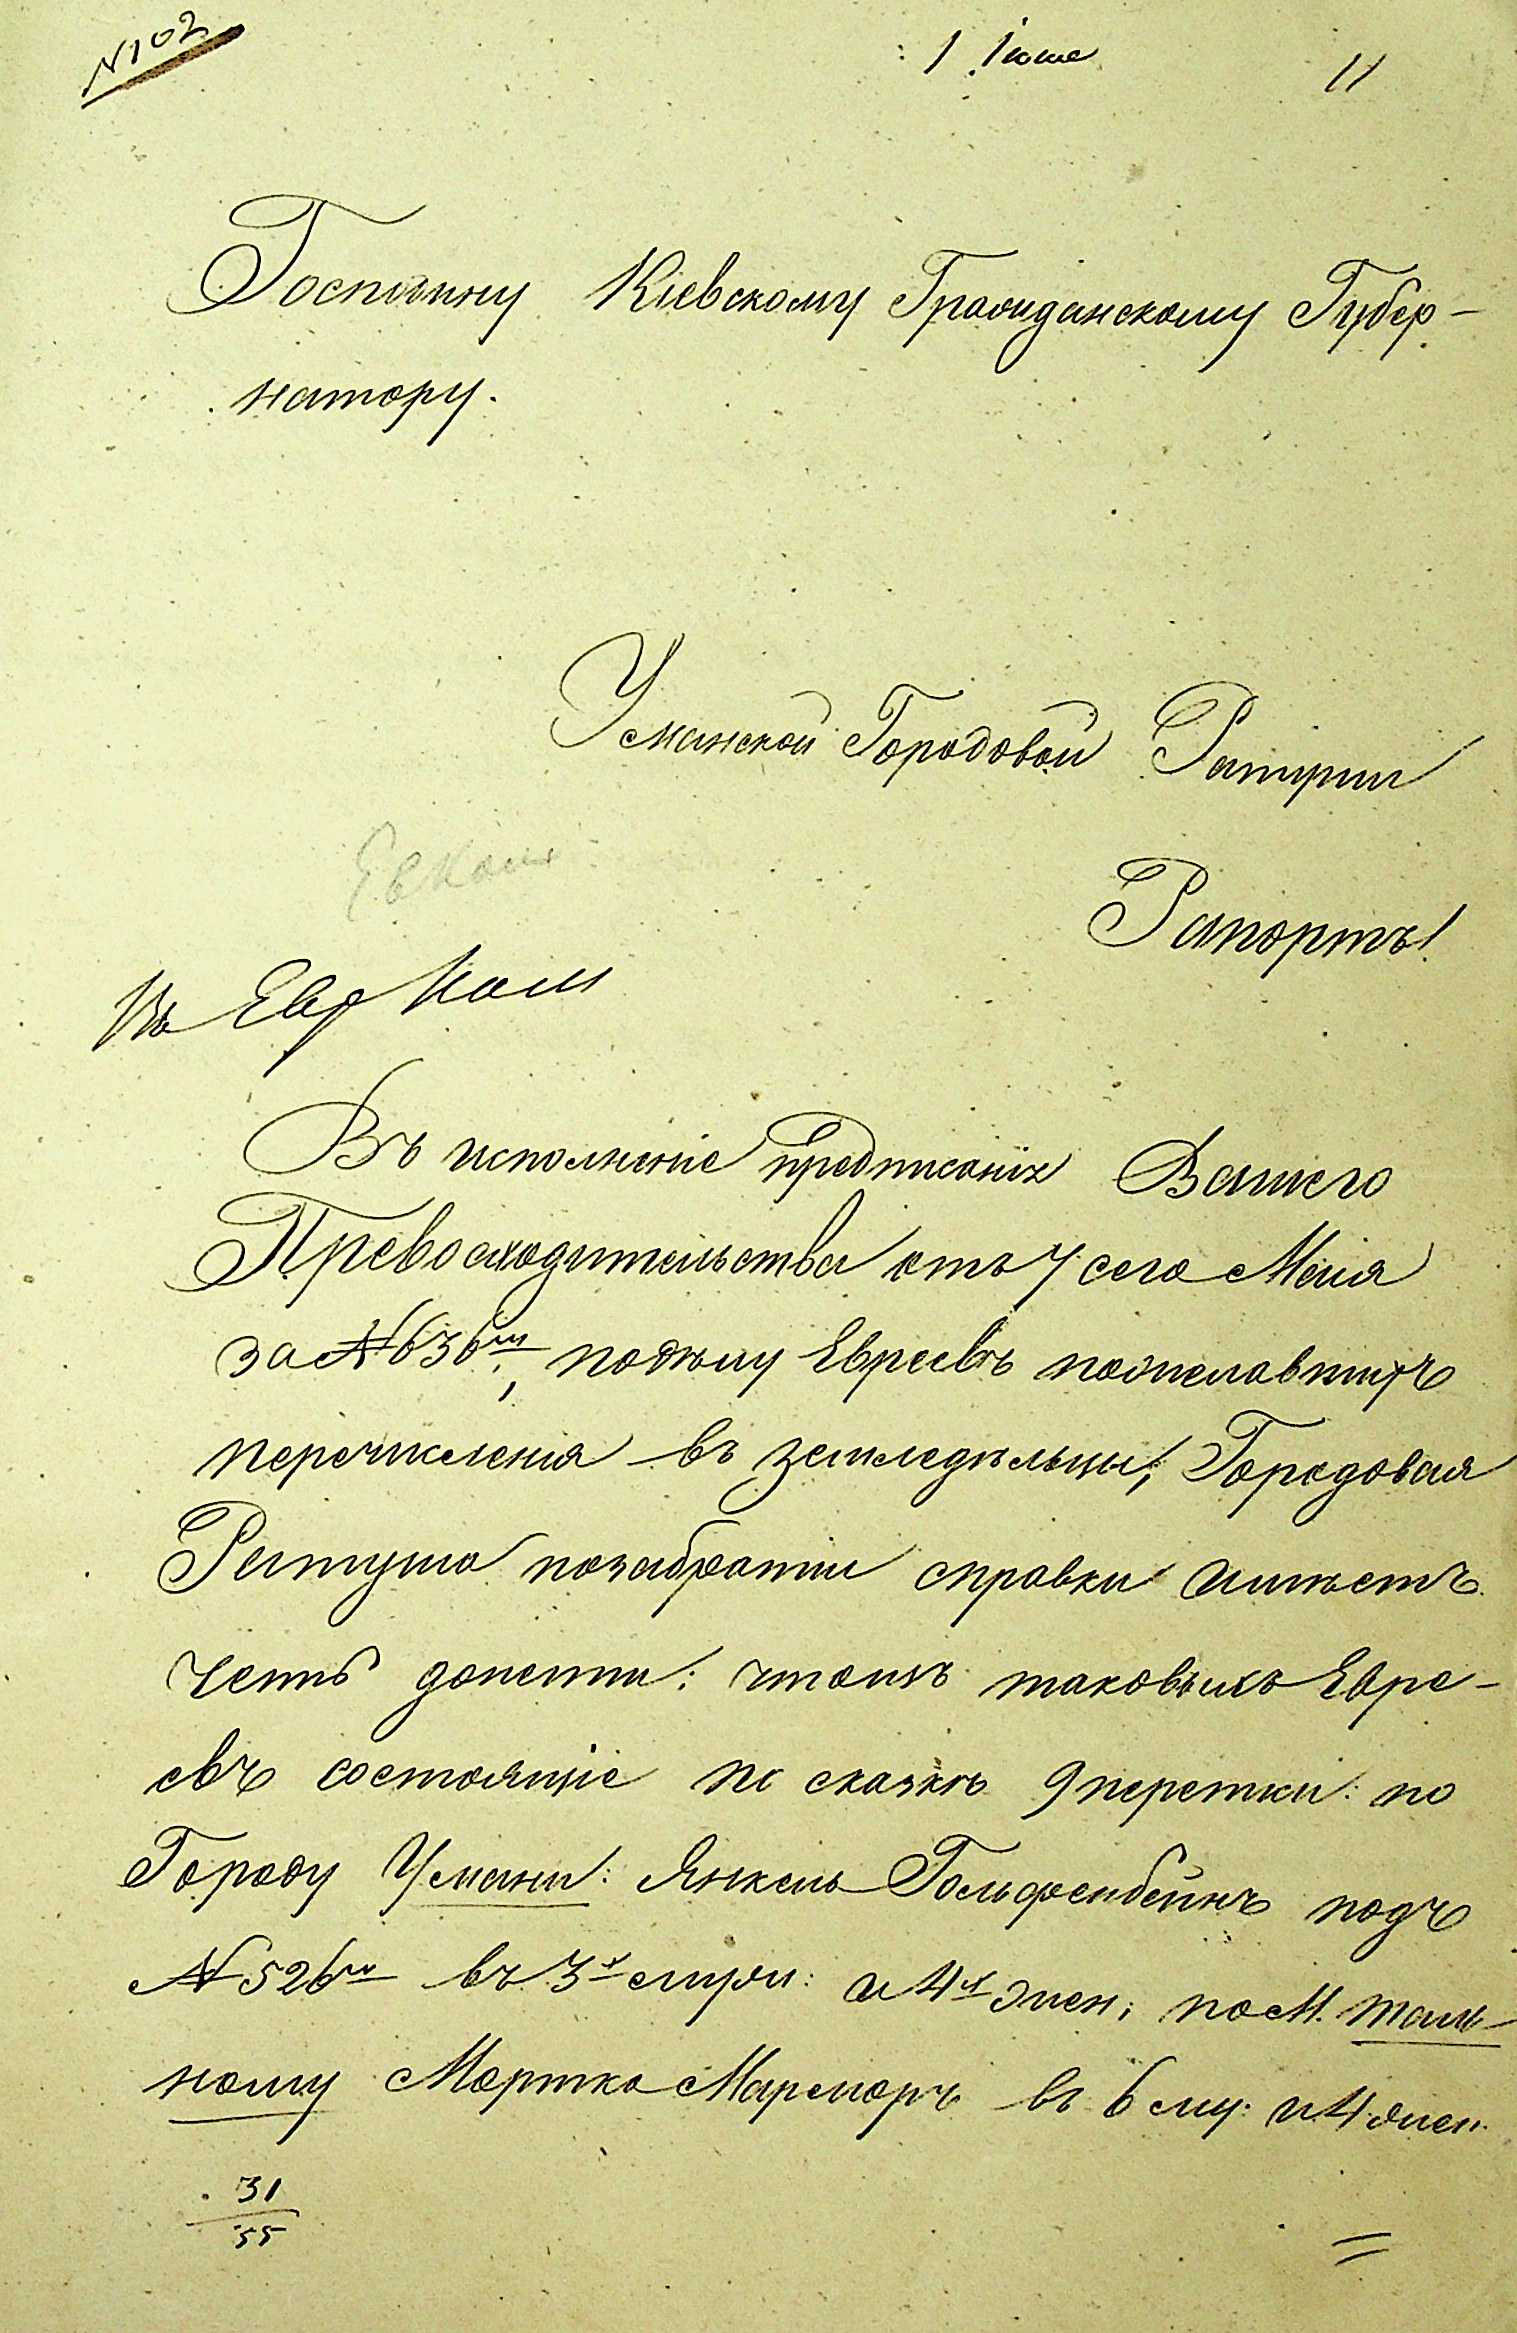 №102
1 Іюня 11
Господину Кіевскому Гражданскому Губер-
натору.
Уманской Городовой Ратуши
Рапортъ!
Въ Евр Кол
Въ исполненіе предписанія Вашего
Превосходительства отъ 7 сего Маія
за №636м, подѣлу Евреевъ пожелавшихъ
перечисленія въ земледѣльцы, Городовая
Ратуша позабратіи справки имѣетъ
честь донести: что изъ таковыхъ Евре-
евъ состоящіе по сказкѣ 9 перепи: по
Городу Умани: Янкель Гольфенбейнъ подъ
№526м въ 3х муж: и 4х жен; по М. Таль-
ному Мортко Марморъ въ 6 му: и 4 жен.
31
55